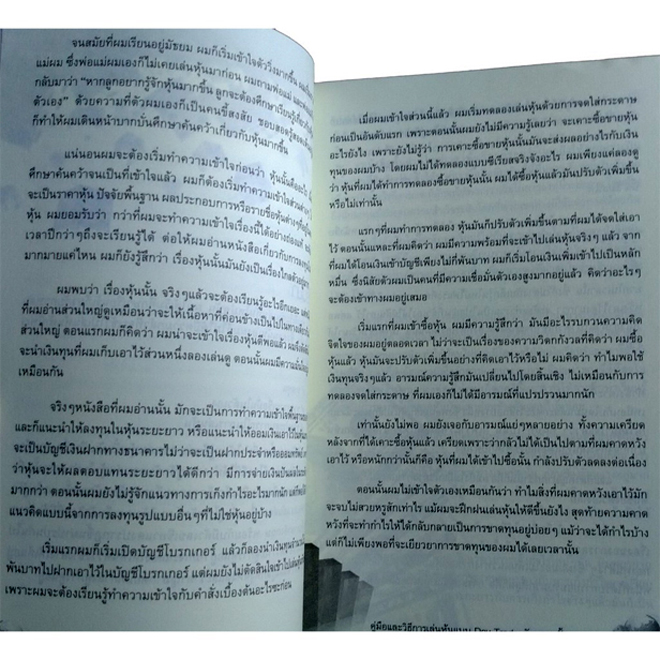 จนสมัยที่ผมเรียนอยู่มัธยม ผมก็เริ่มเข้าใจตัววิ่งมากขึ้น
แม่ผม ซึ่งพ่อแม่ผมเองก็ไม่เคยเล่นหุ้นมาก่อน ผมถามพ่อแม่
กลับมาว่า "หากลูกอยากรู้จักหุ้นมากขึ้น ลูกจะต้องศึกษาเรียนรู้
ตัวเอง" ด้วยความที่ตัวผมเองก็เป็นคนขี้สงสัย ชอบสอดรู้สอดเห็น
ก็ทำให้ผมเดินหน้าบากบั่นศึกษาค้นคว้าเกี่ยวกับหุ้นมากขึ้น
แน่นอนผมจะต้องเริ่มทำความเข้าใจก่อนว่า หุ้นนั้นคืออะไร
ศึกษาค้นคว้าจนเป็นที่เข้าใจแล้ว ผมก็ต้องเริ่มทำความเข้าใจส่วนต่างๆ
จะเป็นราคาหุ้น ปัจจัยพื้นฐาน ผลประกอบการหรือรายชื่อหุ้นต่างๆ
หุ้น ผมยอมรับว่า กว่าที่ผมจะทำความเข้าใจเรื่องนี้ได้อย่างถ่องแท้
เวลาปีกว่าๆถึงจะเรียนรู้ได้ ต่อให้ผมอ่านหนังสือเกี่ยวกับการลงทุน
มากมายแค่ไหน ผมก็ยังรู้สึกว่า เรื่องหุ้นนั้นมันยังเป็นเรื่องไกลตัว
ผมพบว่า เรื่องหุ้นนั้น จริงๆแล้วจะต้องเรียนรู้อะไรอีกเยอะ
ที่ผมอ่านส่วนใหญ่ดูเหมือนว่าจะให้เนื้อหาที่ค่อนข้างเป็นไปในทาง
ส่วนใหญ่ ตอนแรกผมก็คิดว่า ผมน่าจะเข้าใจเรื่องหุ้นดีพอแล้ว
จะนำเงินทุนที่ผมเก็บเอาไว้ส่วนหนึ่งลองเล่นดู ตอนนั้นผมมีความมั่นใจ
เหมือนกัน
จริงๆหนังสือที่ผมอ่านนั้น มักจะเป็นการทำความเข้าใจพื้นฐาน
และก็แนะนำให้ลงทุนในหุ้นระยะยาว หรือแนะนำให้ออมเงินเอาไว้
จะเป็นบัญชีเงินฝากทางธนาคารไม่ว่าจะเป็นฝากประจำหรือออมทรัพย์
ว่าหุ้นจะให้ผลตอบแทนระยะยาวได้ดีกว่า มีการจ่ายเงินปันผล
มากกว่า ตอนนั้นผมยังไม่รู้จักแนวทางการเก็งกำไรอะไรมากนัก
แนวคิดแบบนี้จากการลงทุนรูปแบบอื่นๆที่ไม่ใช่หุ้นอยู่บ้าง
เริ่มแรกผมก็เริ่มเปิดบัญชีโบรกเกอร์ แล้วก็ลองนำเงินทุนจำนวน
พันบาทไปฝากเอาไว้ในบัญชีโบรกเกอร์ แต่ผมยังไม่ตัดสินใจเข้าไปเล่น
เพราะผมจะต้องเรียนรู้ทำความเข้าใจกับคำสั่งเบื้องต้นอะไรซะก่อน
เมื่อผมเข้าใจส่วนนี้แล้ว ผมเริ่มทดลองเล่นหุ้นด้วยการจดใส่กระดาษ
ก่อนเป็นอันดับแรก เพราะตอนนั้นผมยังไม่มีความรู้เลยว่า จะเคาะซื้อขายหุ้น
อะไรยังไง เพราะยังไม่รู้ว่า การเคาะซื้อขายหุ้นนั้นมันจะส่งผลอย่างไรกับเงิน
ทุนของผมบ้าง โดยผมไม่ได้ทดลองแบบซีเรียสจริงจังอะไร ผมเพียงแค่ลองดู
ว่า หุ้นที่ผมได้ทำการทดลองซื้อขายหุ้นนั้น ผมได้ซื้อหุ้นแล้วมันปรับตัวเพิ่มขึ้น
หรือไม่เท่านั้น
แรกๆที่ผมทำการทดลอง หุ้นมันก็ปรับตัวเพิ่มขึ้นตามที่ผมได้จดใส่เอา
ไว้ ตอนนั้นแหละที่ผมคิดว่า ผมมีความพร้อมที่จะเข้าไปเล่นหุ้นจริงๆ แล้ว จาก
ที่ผมได้โอนเงินเข้าบัญชีเพียงไม่กี่พันบาท ผมก็เริ่มโอนเงินเพิ่มเข้าไปเป็นหลัก
หมื่น ซึ่งนิสัยตัวผมเป็นคนที่มีความเชื่อมั่นตัวเองสูงมากอยู่แล้ว คิดว่าอะไรๆ
จะต้องเข้าทางผมอยู่เสมอ
เริ่มแรกที่ผมเข้าซื้อหุ้น ผมมีความรู้สึกว่า มันมีอะไรรบกวนความคิด
จิตใจของผมอยู่ตลอดเวลา ไม่ว่าจะเป็นเรื่องของความวิตกกังวลที่ว่า ผมซื้อ
หุ้นแล้ว หุ้นมันจะปรับตัวเพิ่มขึ้นอย่างที่คิดเอาไว้หรือไม่ ผมคิดว่า ทำไมพอใช้
เงินทุนจริงๆแล้ว อารมณ์ความรู้สึกมันเปลี่ยนไปโดยสิ้นเชิง ไม่เหมือนกับการ
ทดลองจดใส่กระดาษ ที่ผมเองก็ไม่ได้มีอารมณ์ที่แปรปรวนมากนัก
เท่านั้นยังไม่พอ ผมยังเจอกับอารมณ์แย่ๆหลายอย่าง ทั้งความเครียด
หลังจากที่ได้เคาะซื้อหุ้นแล้ว เครียดเพราะว่ากลัวไม่ได้เป็นไปตามที่ผมคาดหวัง
เอาไว้ หรือหนักกว่านั้นก็คือ หุ้นที่ผมได้เข้าไปซื้อนั้น กำลังปรับตัวลดลงต่อเนื่อง
ตอนนั้นผมไม่เข้าใจตัวเองเหมือนกันว่า ทำไมสิ่งที่ผมคาดหวังเอาไว้มัก
จะจบไม่สวยหรูสักเท่าไร แม้ผมจะฝึกฝนเล่นหุ้นให้ดีขึ้นยังไง สุดท้ายความคาด
หวังที่จะทำกำไรให้ได้กลับกลายเป็นการขาดทุนอยู่บ่อยๆ แม้ว่าจะได้กำไรบ้าง
แต่ก็ไม่เพียงพอที่จะเยียวยาการขาดทุนของผมได้เลยเวลานั้น
คู่มือและวิธีการเล่นหุ้นแบบ Day Trade